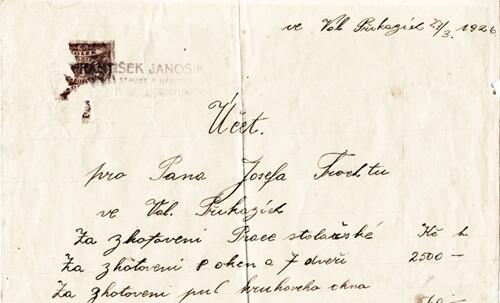 ve Val. Přikazích 27/3. 1926
FRANTIŠEK JANOŠÍK
Účet.
pro Pana Josefa Trochtu
ve Val. Přikazích
Za zhotovení Prace stolařské Kč h
Za zhotovení 8 oken a 7 dveří 2500 —
Za zhotovení pul kruhoveho okna